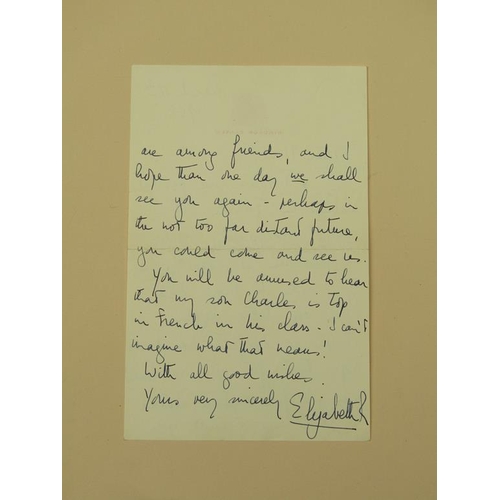 are among friends, and I
hope than one day we shall
see you again - perhaps in
the not too far distant future,
you could come and see us.
You will be amused to hear
that my son Charles is top
in French in his class - I can't
imagine what that means!
With all good wishes.
Yours very sincerely Elizabeth R